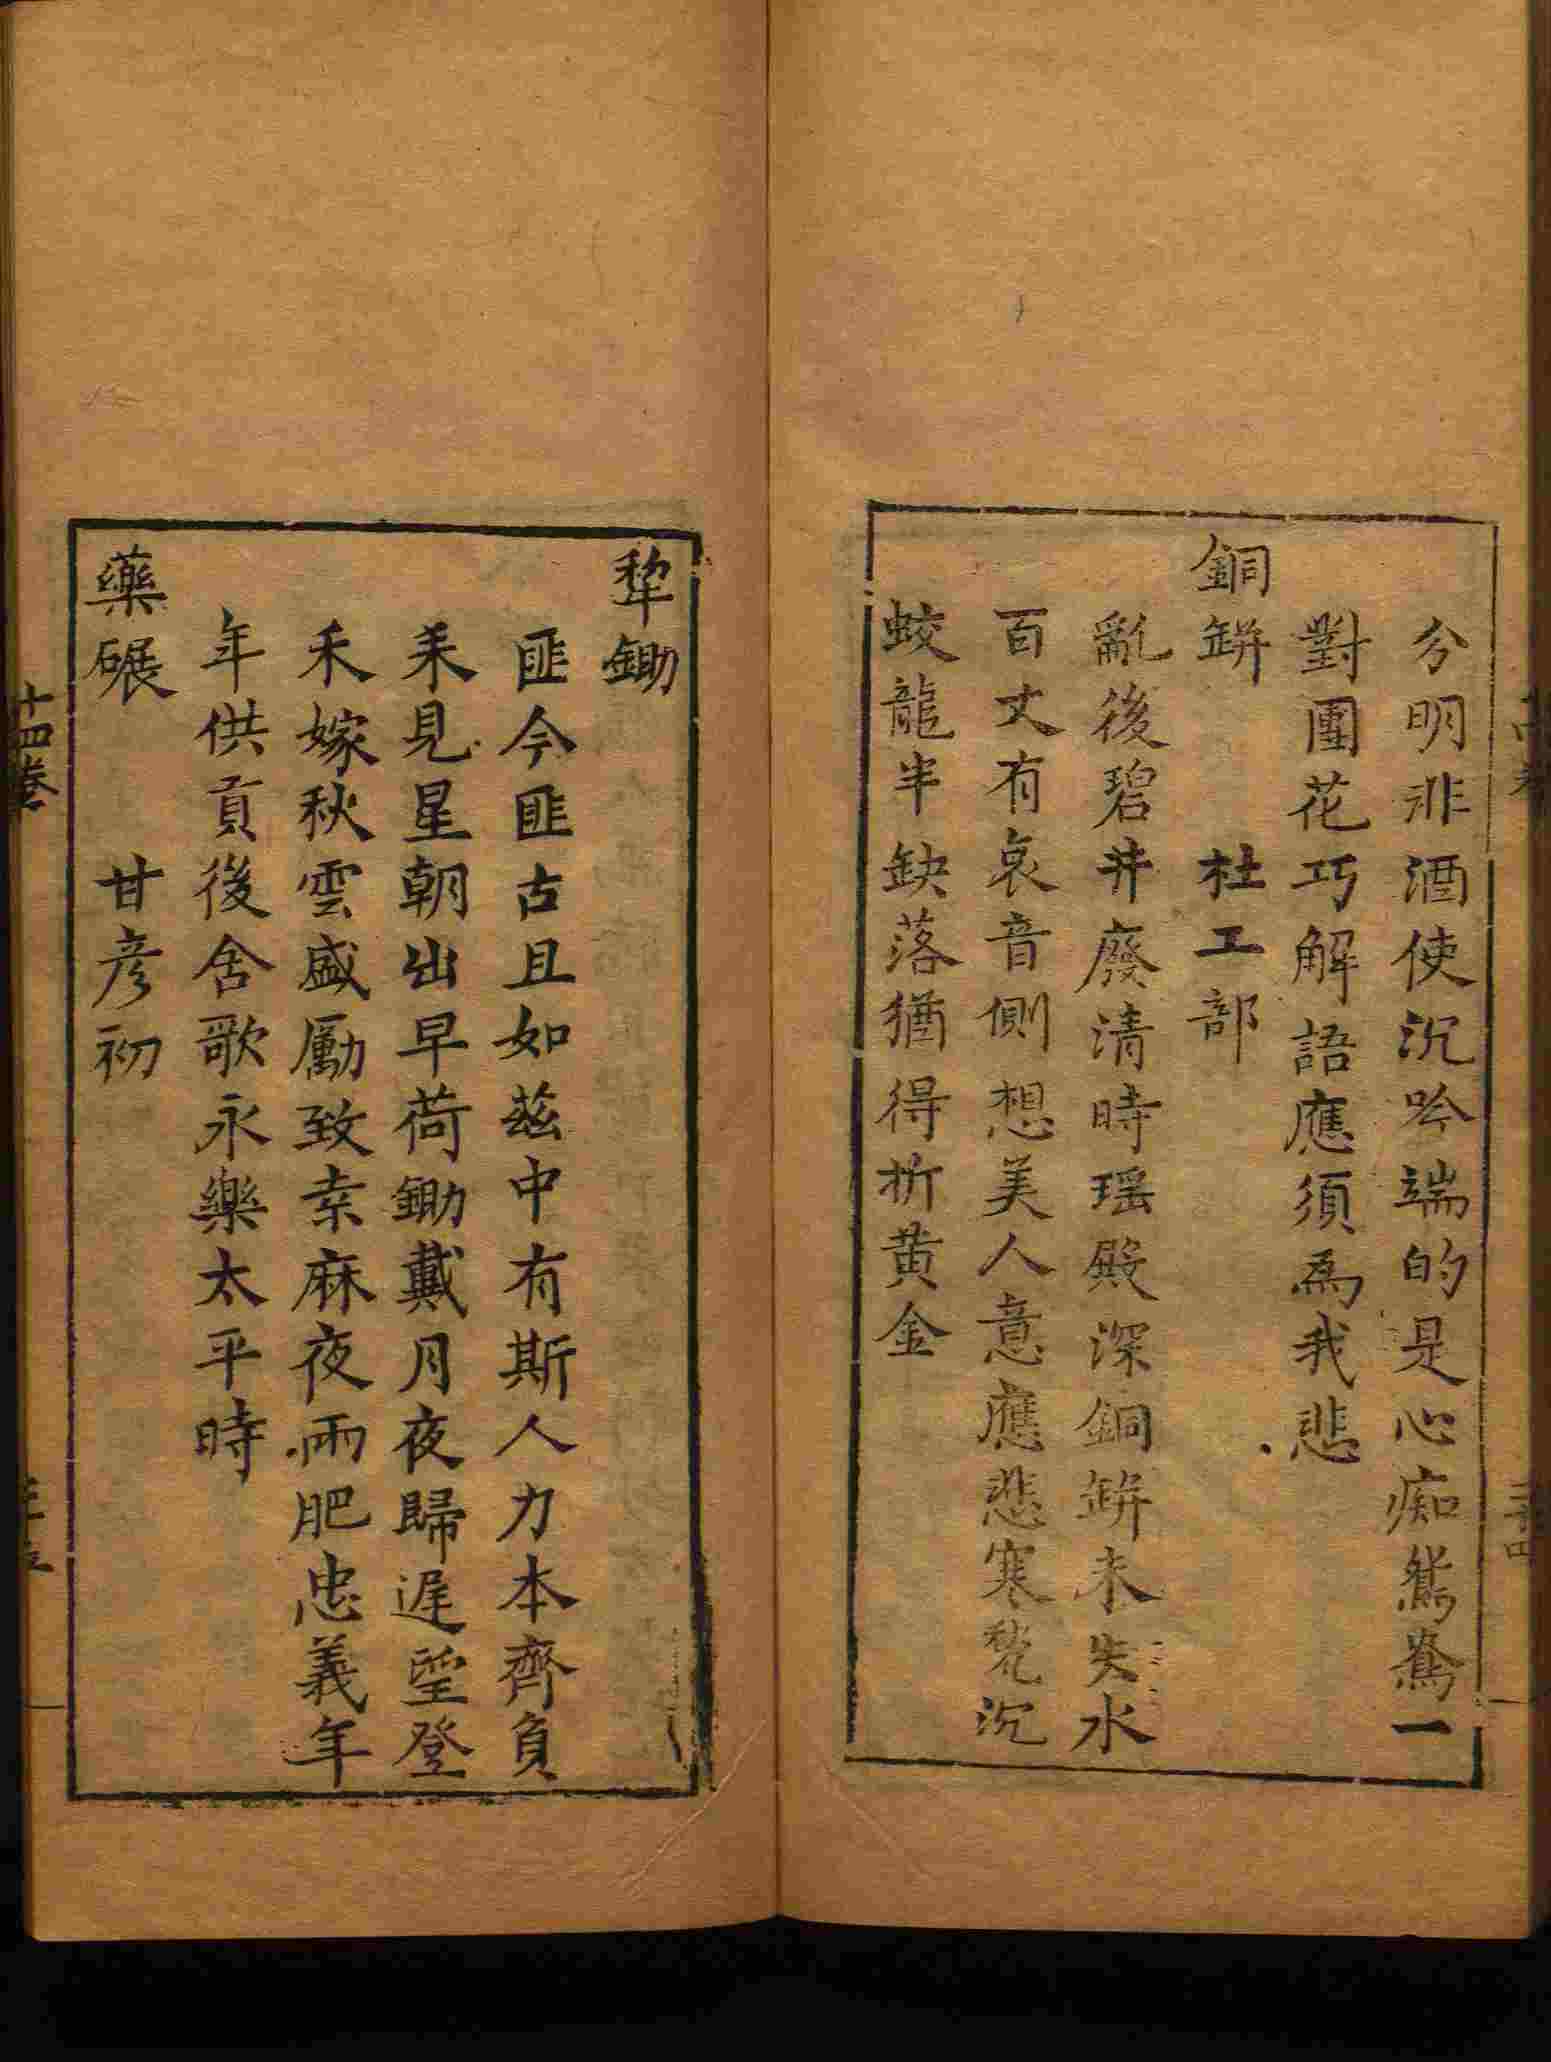 分明非酒使沉吟端的是心痴鴛鴦一
對團花巧解語應須為我悲
銅缾　杜工部
亂後碧井廢清時瑶殿深銅缾未失水
百丈有哀音側想美人意應悲寒甃沉
蛟龍半缺落猶得折黄金
犂鋤
匪今匪古且如兹中有斯人力本齊負
耒見星朝出早荷鋤戴月夜歸遅望登
禾嫁秋雲盛勵致枲麻夜雨肥忠義年
年供貢後舍歌永樂太平時
藥碾　甘彦初
十四卷